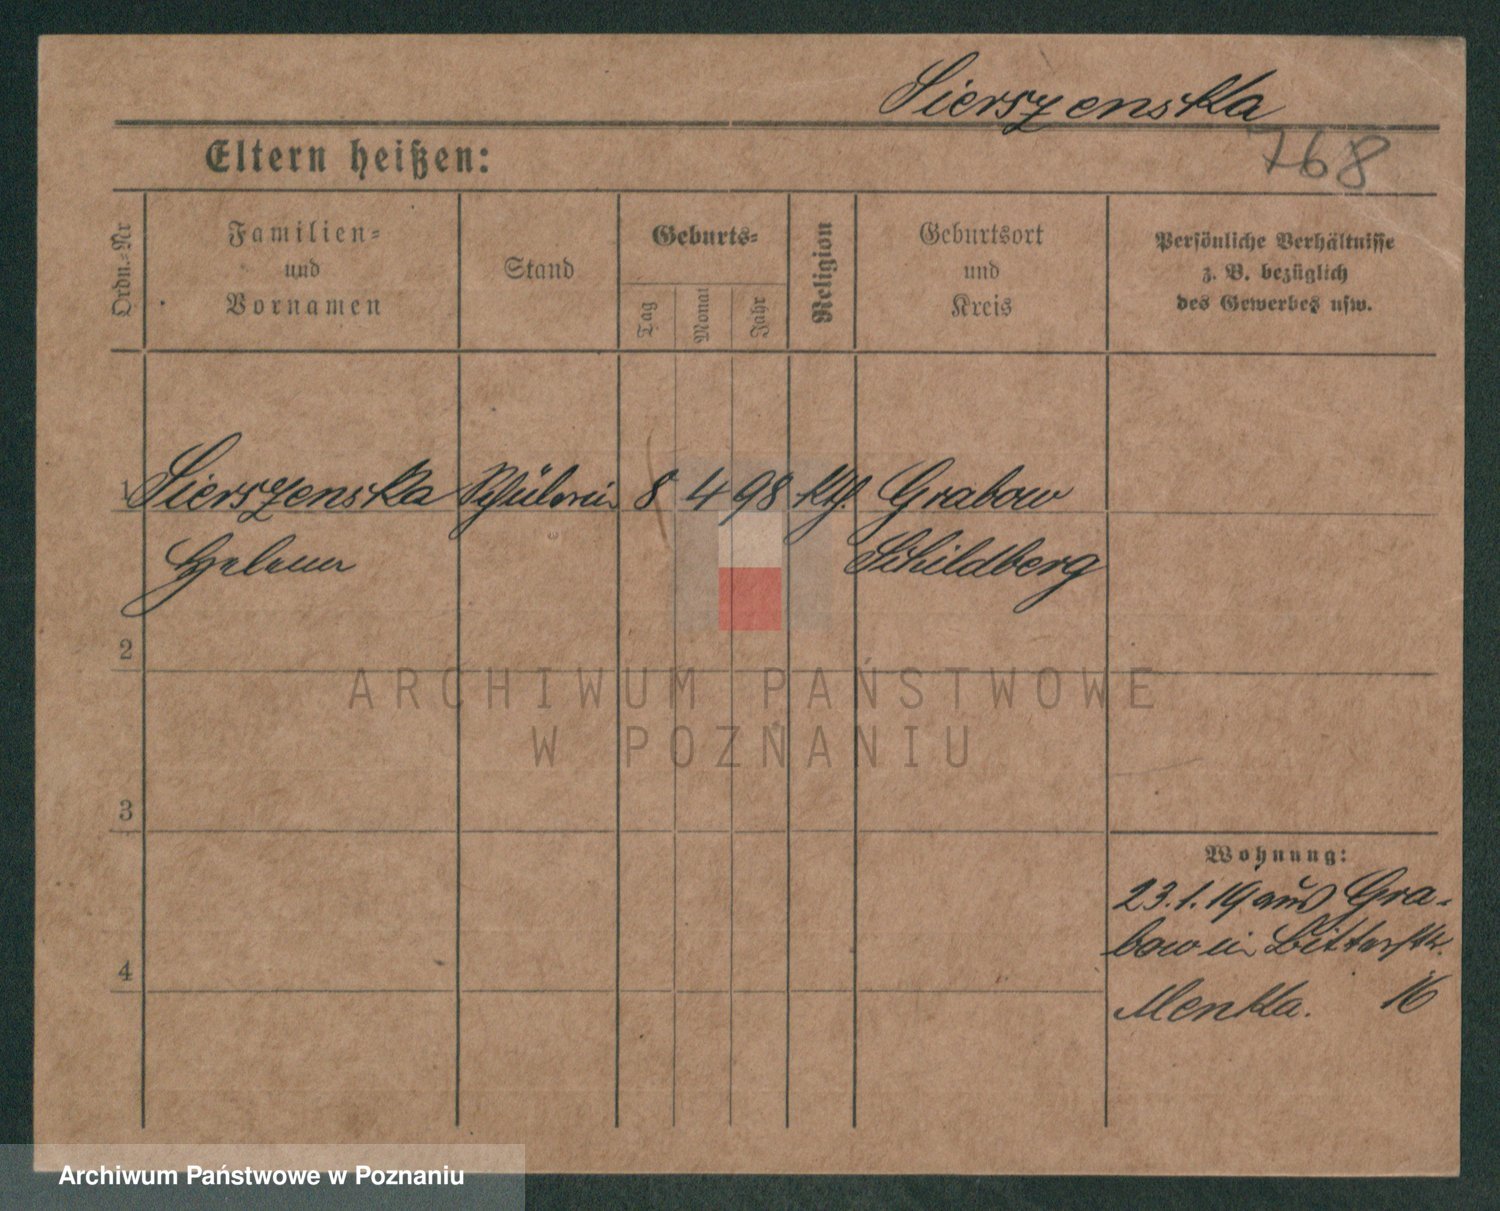 Sierszenska
768
Eltern heißen:
Ordn.-Nr
Familien-
und
Vornamen
Stand
Geburts-
Tag
Monat
Jahr
Religion
Geburtsort
und
Kreis
Persönliche Verhältnisse
z. B. bezüglich
des Gewerbes usw.
1 Sierszenska Schülerin 8 4 98 kth. Grabow
Helena Schildberg
2
3
4
Wohnung:
23.1.19 aus Gra-
bow in Bitterstr.
Menka. 16
ARCHIWUM PAŃSTWOWE
W POZNANIU
Archiwum Państwowe w Poznaniu